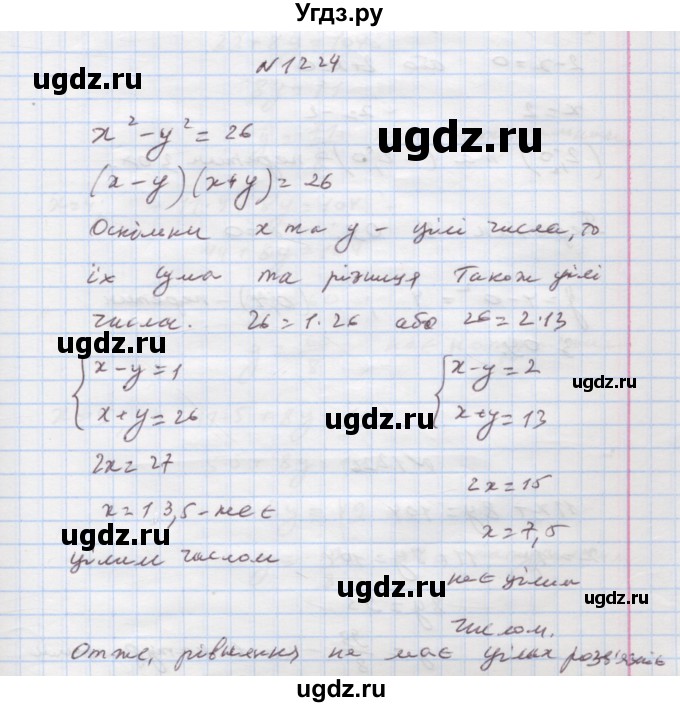 Угдз.ру
N 1224
ugdz.ru
x² - y² = 26
ugdz.ru
(x - y)(x + y) = 26
ugdz.ru
Оскільки x та y - цілі числа, то
їх сума та різниця також цілі
числа. 26 = 1·26 або 26 = 2·13
ugdz.ru
{ x - y = 1
{ x - y = 2
ugdz.ru
x + y = 26
x + y = 13
ugdz.ru
2x = 27
2x = 15
x = 13,5 - не є
x = 7,5
ugdz.ru
ugdz.ru
цілим числом
не є цілим
ugdz.ru
ugdz.ru
числом.
Отже, рівняння не має цілих розв'язків
ugdz.ru
ugdz.ru